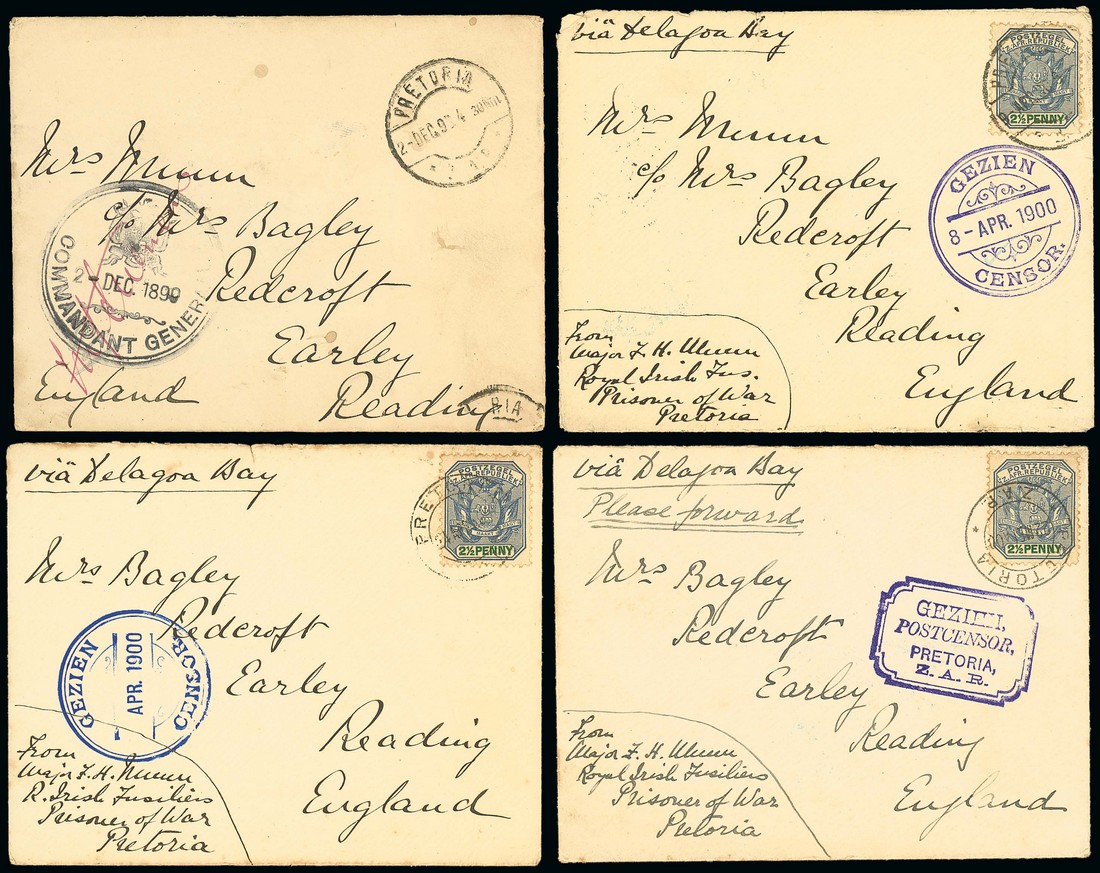 PRETORIA
2-DEC.99
Mrs Munn
c/o Mrs Bagley
Redcroft
Earley
Reading
England
COMMANDANT GENERAL
2-DEC. 1899
RIA
viâ Delagoa Bay
POSTZEGEL
Z. AFR. REPUBLIEK
2½ PENNY
Mrs Munn
c/o Mrs Bagley
Redcroft
Earley
Reading
England
GEZIEN
8-APR. 1900
CENSOR.
From
Major F. H. Munn
Royal Irish Fus.
Prisoner of War
Pretoria
viâ Delagoa Bay
POSTZEGEL
Z. AFR. REPUBLIEK
2½ PENNY
PRET
Mrs Bagley
Redcroft
Earley
Reading
England
GEZIEN
APR. 1900
CENSOR
From
Major F. H. Munn
R. Irish Fusiliers
Prisoner of War
Pretoria
viâ Delagoa Bay
Please forward
POSTZEGEL
Z. AFR. REPUBLIEK
2½ PENNY
PRETORIA
Z.A.R.
Mrs Bagley
Redcroft
Earley
Reading
England
GEZIEN,
POSTCENSOR,
PRETORIA,
Z. A. R.
From
Major F. H. Munn
Royal Irish Fusiliers
Prisoner of War
Pretoria